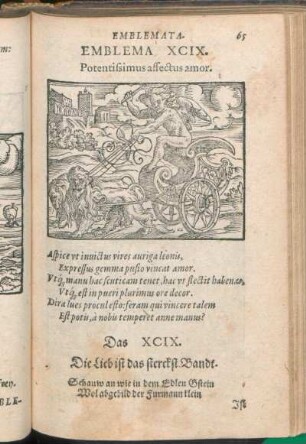 EMBLEMATA. 65
EMBLEMA XCIX.
Potentissimus affectus amor.
Aspice vt inuictus vires auriga lionis,
Expressus gemma pusio vincat amor.
Vtq́, manu hac scuticam tenet, hac vt flectit habenas,
Vtq́, est in pueri plurimus ore decor.
Dira lues procul esto: feram qui vincere talem
Est potis, à nobis temperet anne manus?
Das XCIX.
Die Lieb ist das sterckst Bandt.
Schauw an wie in dem Edlen Gstein
Wol abgebild der Furmann klein
Ist